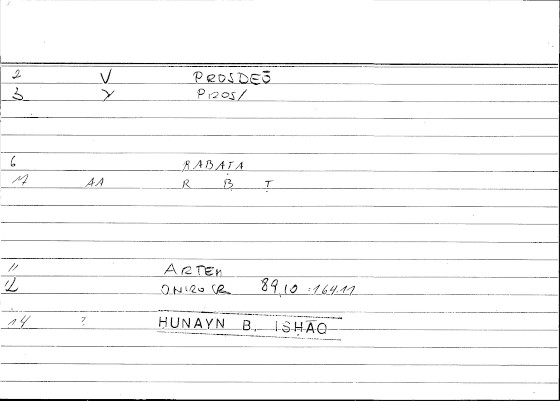 2 V PROSDEŌ
3 Y PROS/
6 RABAṬA
AA R B Ṭ
11 ARTEM
12 ONIROCR 89,10 = 164.11
14 ? HUNAYN B. ISḤĀQ